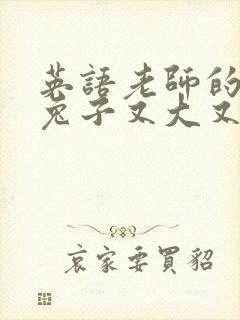 英語老師的
兔子又大又
哀家要買貂